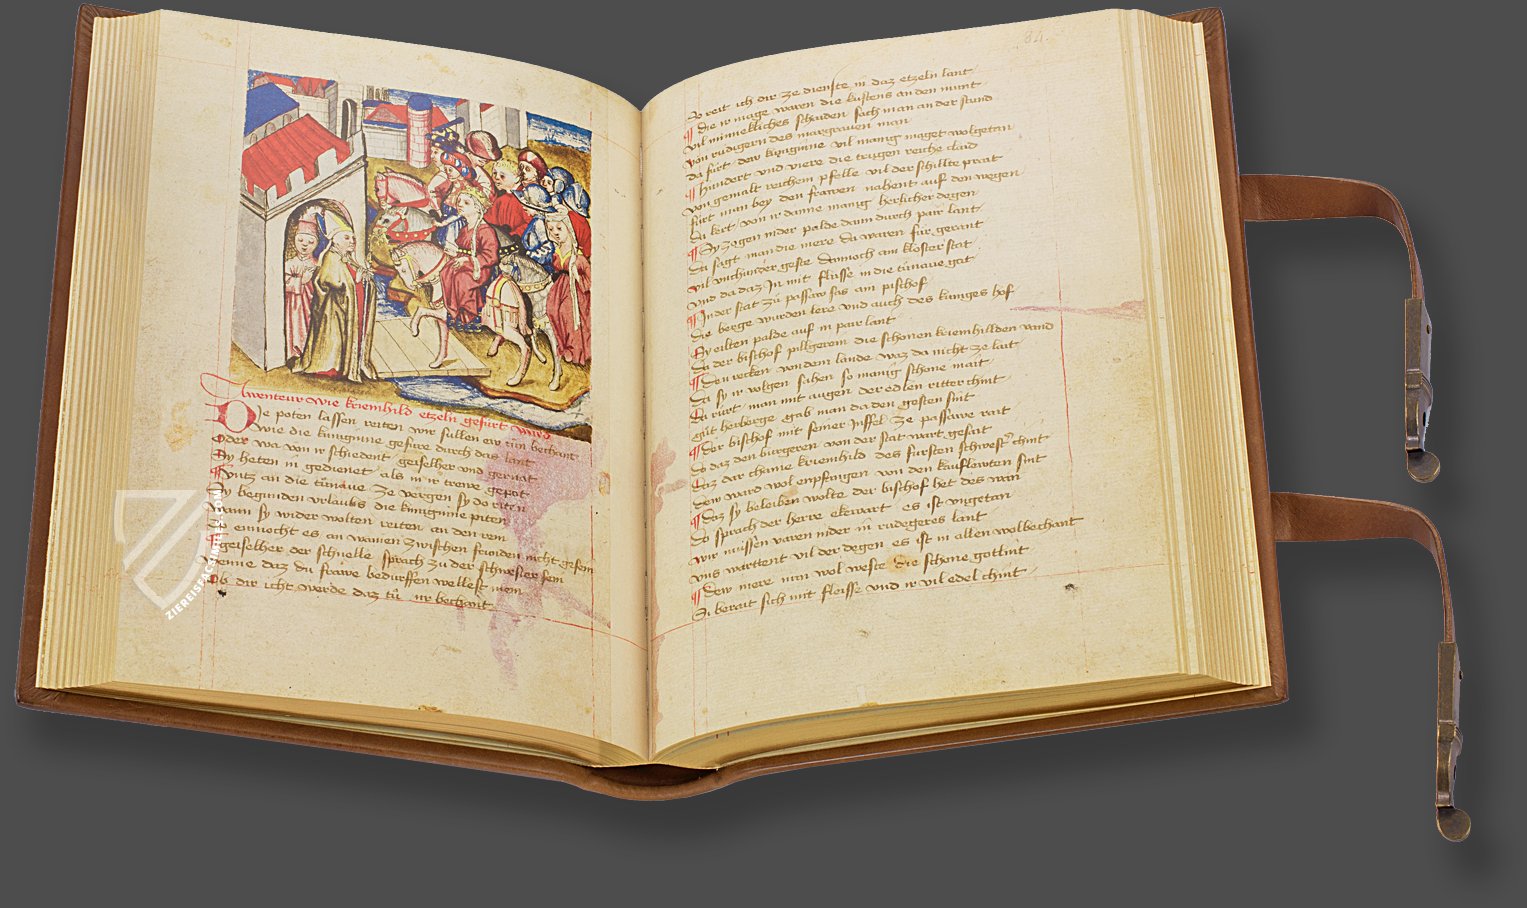 Awenteur wie kriemhild etzeln gefurt ward
Die poten lassen reiten wir süllen ew tün bechant
wie die künginne gefüre durch das lant
oder wa von ir schiedent geiselher vnd gernat
Sy heten in gedienet als in ir trewe gepot
Vntz an die tünaue ze vergen sy do riten
Sy begunden vrlaubs die künginne piten
wann sy wider wolten reiten an den rein
Do enmocht es an wainen zwischen freunden nicht gesein
geiselher der schnelle sprach zu der schwester sein
wenne daz du frawe bedurffen wellest mein
Ob dir icht werde daz tü mir bechant
ZIEREIS FACSIMILES.COM
84.
So reit ich dir ze dienste in daz etzeln lant
die ir mage waren die kustens an den munt
vil minnekliches schaiden sach man an der stund
von rudigern des margrauen man
da fürt dew künginne vil manig maget wolgetan
hundert vnd viere die trugen reiche claid
von gemalt reichem pfelle vil der schillte prait
fürt man bey den frawen nahent auf den wegen
da kert von ir danne manig herlicher degen
Sy zogen nider palde dann durch pair lant
da sagt man die mere da waren für gerant
vil vnchunder geste dannoch ain kloster stat
vnd da daz In mit flüsse in die tünaue gat
In der stat zü passaw sas ain pischof
die berge wurden lere vnd auch des küniges hof
Sy eilten palde auf in pair lant
da der bischof pillgerein die schonen kriemhillden vand
Den recken von dem lande waz da nicht ze lait
da sy ir volgen sahen so manig schone mait
da rürt man mit augen der edlen ritter chint
güt herberge gab man da den gesten sint
der bischof mit seiner niffel ze passawe rait
do daz den burgeren von der stat wart gesait
Daz dar chame kriemhild des fürsten schwester chint
dew ward wol enpfangen von den kauflewten sint
Daz sy beleiben wolte der bischof het des wan
do sprach der herre ekewart es ist vngetan
wir müssen varen nider in rudegeres lant
vns warttent vil der degen es ist in allen wolbechant
dew mere nun wol weste die schone gotlint
Si berait sich mit fleisse vnd ir vil edel chint